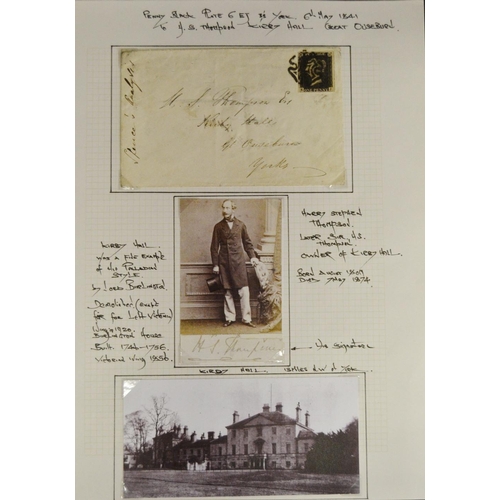 Penny Black Plate 6 EJ York 6th May 1841
To H.S. Thompson Kirby Hall Great Ouseburn
H. S. Thompson Esq
Kirby Hall
Gt Ouseburn
Yorks
ONE PENNY
Kirby Hall
was a fine example
of his Palladian
Style
by Lord Burlington
Demolished (except
for far Left Victorian
Wing) 1920.
Burlington House
Built 1746-1756.
Victorian Wing 1850.
Harry Stephen
Thompson.
Later Sir H.S.
Thompson
owner of Kirby Hall.
Born August 1809
Died May 1874.
H. S. Thompson
His signature
Kirby Hall 15 Miles N.W of York